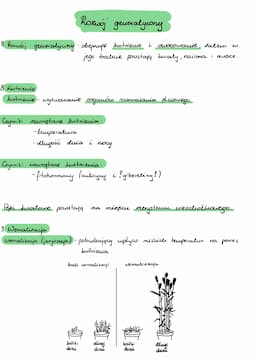 Rozwój generatywny
Rozwój generatywny - obejmuje kwitnienie i owocowanie, zatem w
jego trakcie powstają kwiaty, nasiona i owoce.
Kwitnienie
Kwitnienie - wytwarzanie organów rozmnażania płciowego.
Czynniki zewnętrzne kwitnienia
- temperatura
- długość dnia i nocy
Czynniki wewnętrzne kwitnienia:
- fitohormony (auksyny i gibereliny)
Pąki kwiatowe powstają na miejscu merystemu wierzchołkowego.
3 Wernalizacja
wernalizacja (jaryzacja) - pobudzający wpływ niskich temperatur na proces
kwitnienia
brak wernalizacji wernalizacja
krótki długi krótki długi
dzień dzień dzień dzień